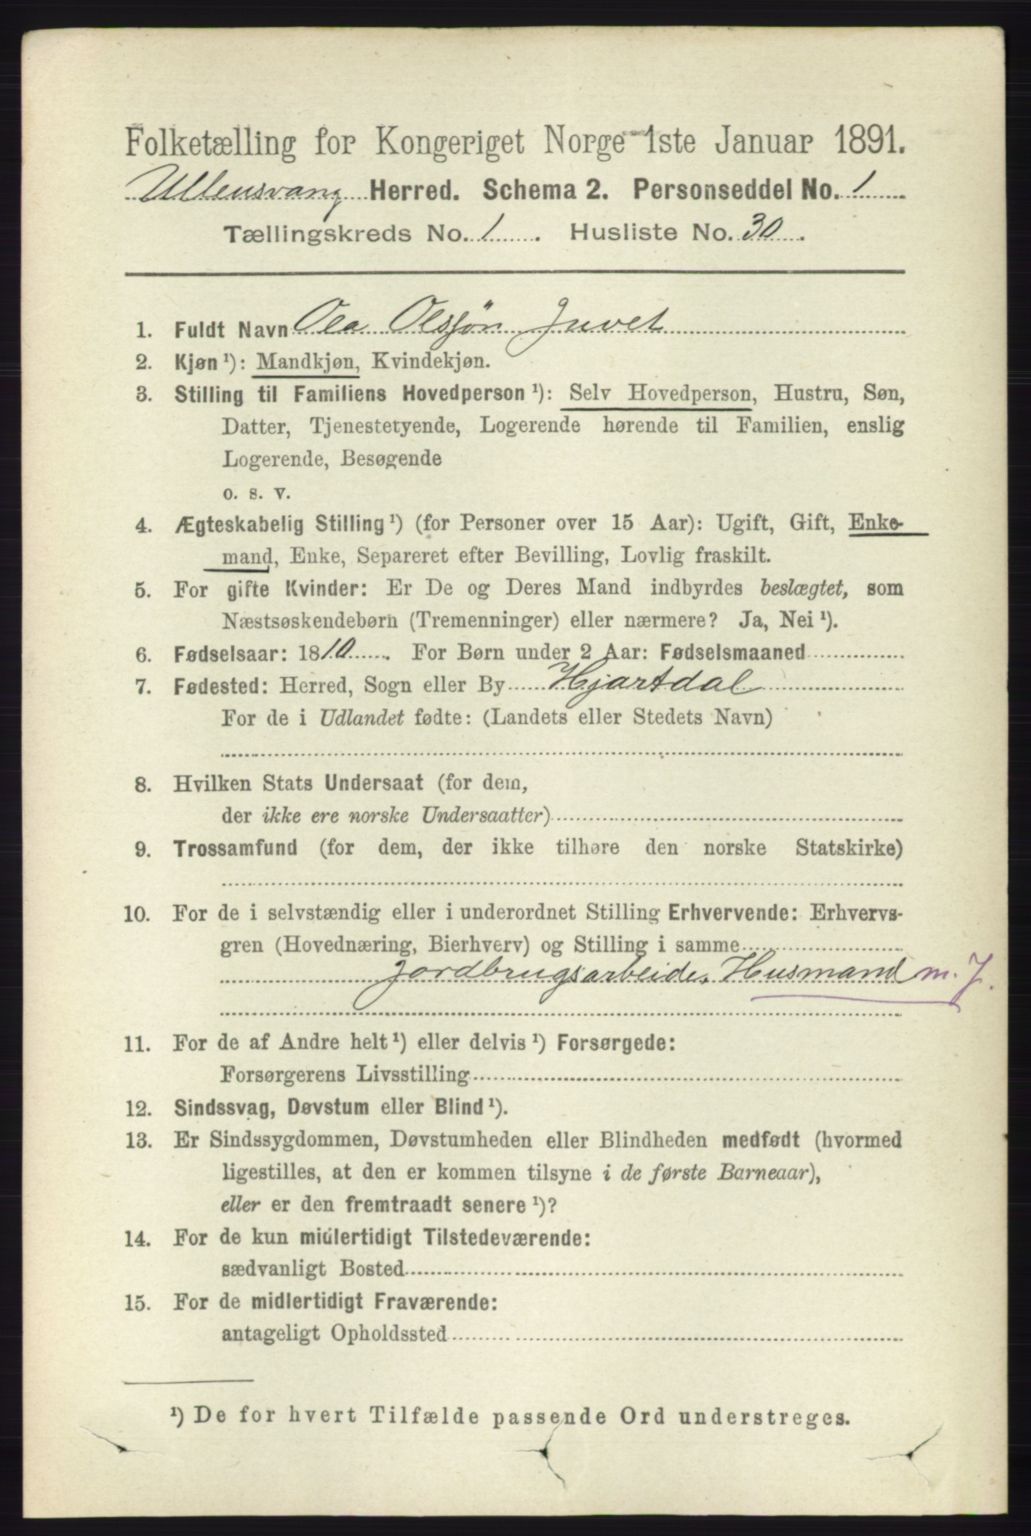 Folketælling for Kongeriget Norge 1ste Januar 1891.
Ullensvang Herred. Schema 2. Personseddel No. 1
Tællingskreds No. 1. Husliste No. 30.
1. Fuldt Navn Ola Olssøn Juvet
2. Kjøn ¹): Mandkjøn, Kvindekjøn.
3. Stilling til Familiens Hovedperson ¹): Selv Hovedperson, Hustru, Søn,
Datter, Tjenestetyende, Logerende hørende til Familien, enslig
Logerende, Besøgende
o. s. v.
4. Ægteskabelig Stilling ¹) (for Personer over 15 Aar): Ugift, Gift, Enke-
mand, Enke, Separeret efter Bevilling, Lovlig fraskilt.
5. For gifte Kvinder: Er De og Deres Mand indbyrdes beslægtet, som
Næstsøskendebørn (Tremenninger) eller nærmere? Ja, Nei ¹).
6. Fødselsaar: 1810. For Børn under 2 Aar: Fødselsmaaned
7. Fødested: Herred, Sogn eller By Hjartdal
For de i Udlandet fødte: (Landets eller Stedets Navn)
8. Hvilken Stats Undersaat (for dem,
der ikke ere norske Undersaatter)
9. Trossamfund (for dem, der ikke tilhøre den norske Statskirke)
10. For de i selvstændig eller i underordnet Stilling Erhvervende: Erhvervs-
gren (Hovednæring, Bierhverv) og Stilling i samme
Jordbrugsarbeider, Husmand m. J.
11. For de af Andre helt ¹) eller delvis ¹) Forsørgede:
Forsørgerens Livsstilling
12. Sindssvag, Døvstum eller Blind ¹).
13. Er Sindssygdommen, Døvstumheden eller Blindheden medfødt (hvormed
ligestilles, at den er kommen tilsyne i de første Barneaar),
eller er den fremtraadt senere ¹)?
14. For de kun midlertidigt Tilstedeværende:
sædvanligt Bosted
15. For de midlertidigt Fraværende:
antageligt Opholdssted
¹) De for hvert Tilfælde passende Ord understreges.